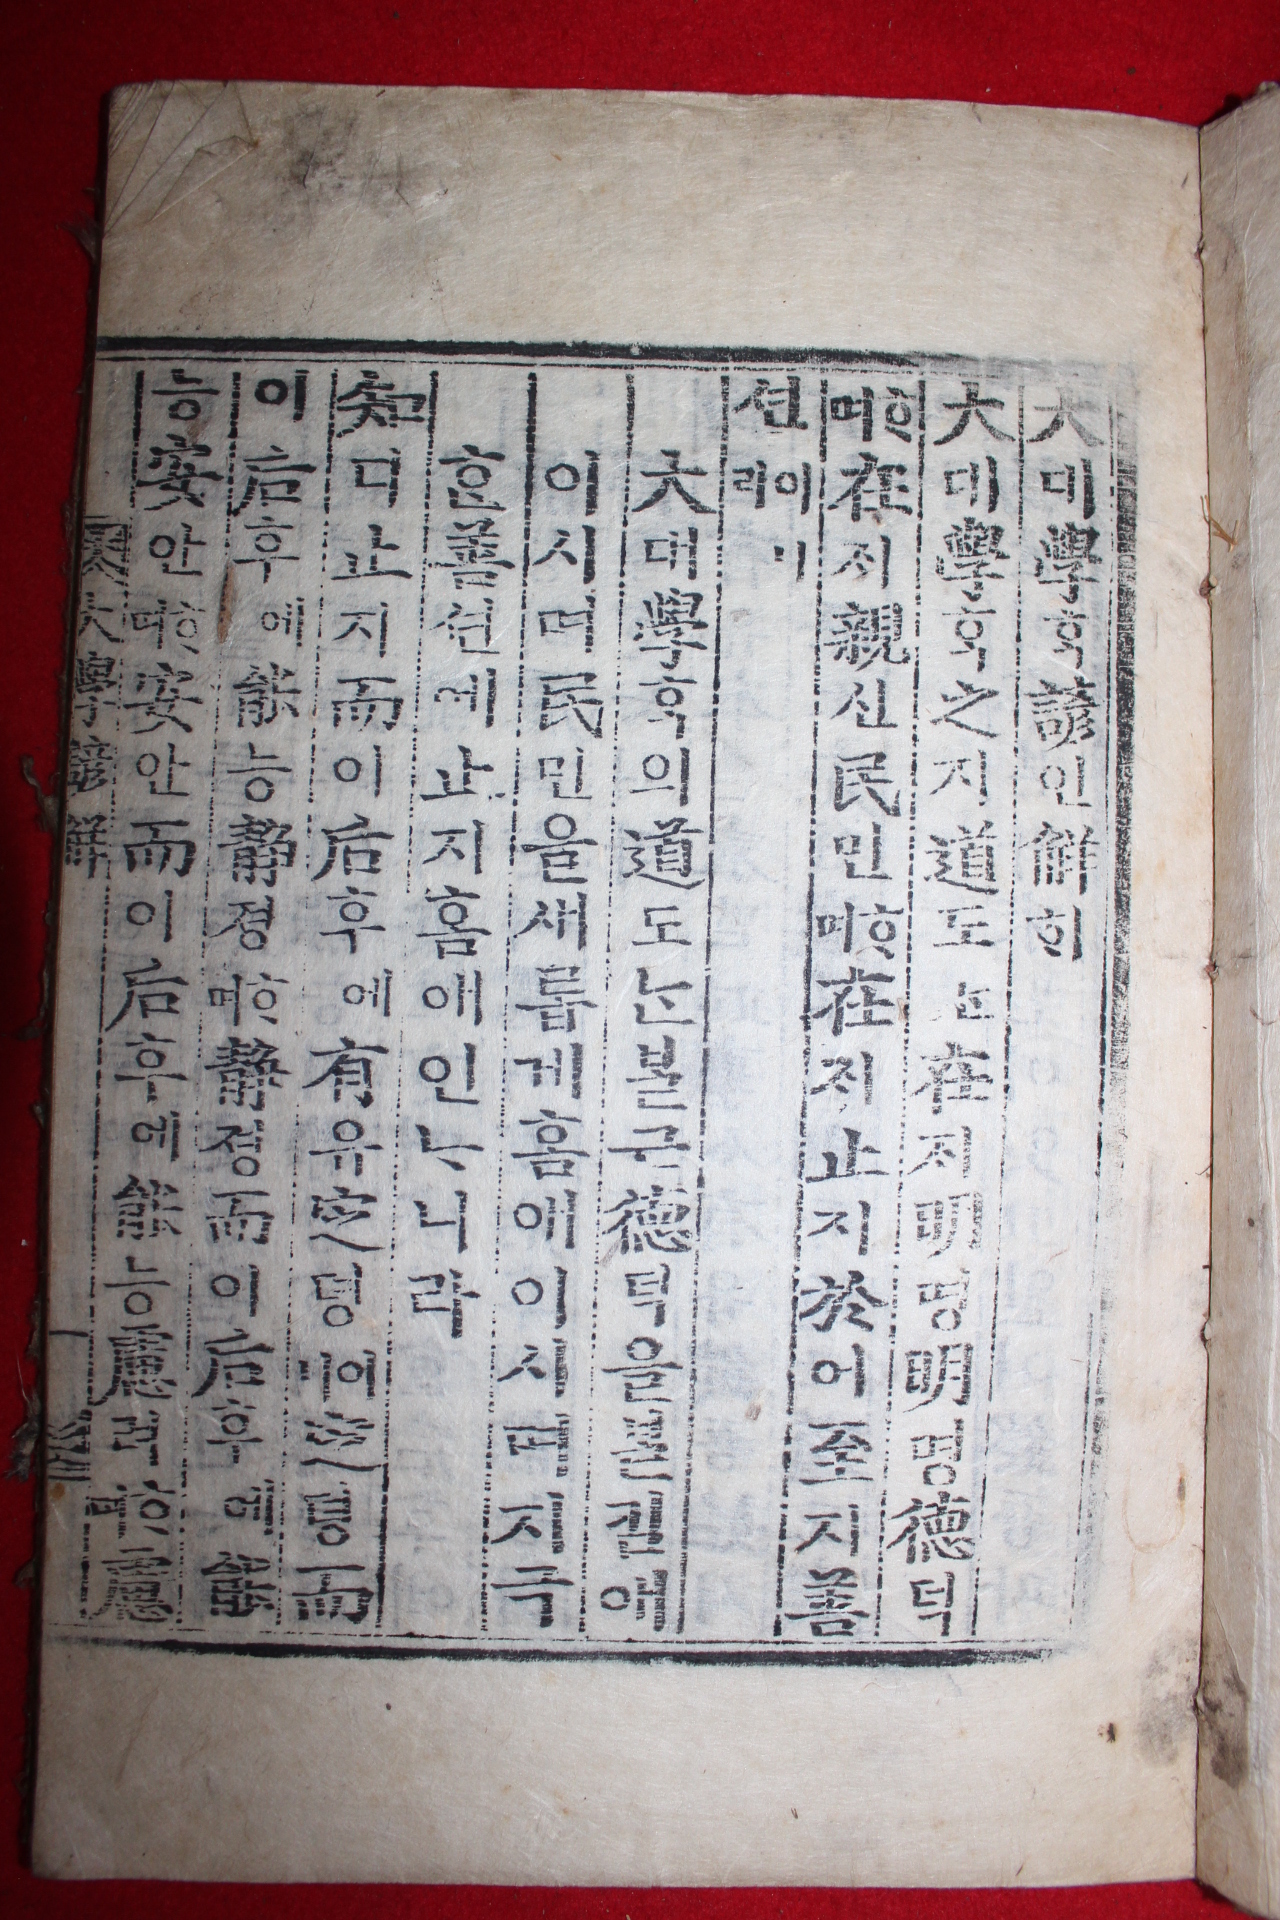 大대學ᄒᆞᆨ諺언解ᄒᆡ
大대學ᄒᆞᆨ之지道도ᄂᆞᆫ在ᄌᆡ明명明명德덕
ᄒᆞ며在ᄌᆡ親신民민ᄒᆞ며在ᄌᆡ止지於어至지善
션이니라
大대學ᄒᆞᆨ의道도ᄂᆞᆫ ᄇᆞᆯᄀᆞᆫ德덕을ᄇᆞᆯ킴애
이시며民민을새롭게홈애이시며지극
ᄒᆞᆫ善션에止지홈애인ᄂᆞ니라
知디止지而이后후에有유定뎡이니定뎡而
이后후에能능靜졍ᄒᆞ며靜졍而이后후에能
능安안ᄒᆞ며安안而이后후에能능慮려ᄒᆞ며慮
大學諺解